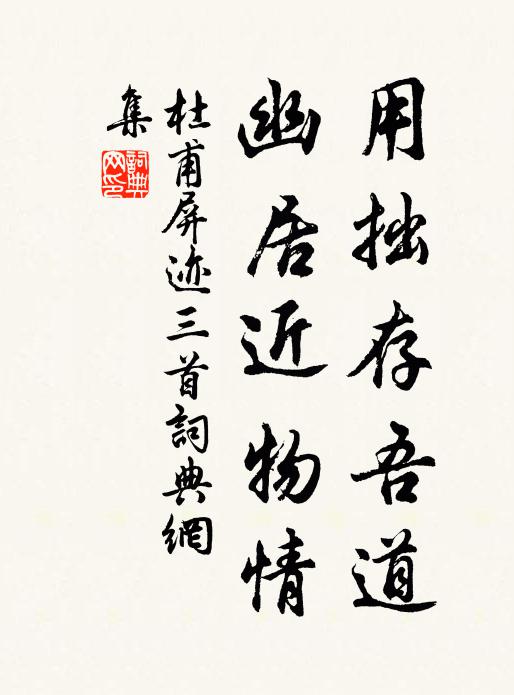 用拙存吾道
幽居近物情
杜甫屏迹三首詞典網
集
詞典网印